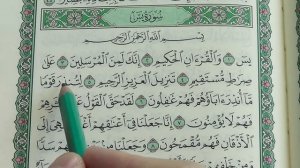 سُورَةُ يسٓ
بِسْمِ ٱللَّهِ ٱلرَّحْمَٰنِ ٱلرَّحِيمِ
يسٓ ١ وَٱلْقُرْءَانِ ٱلْحَكِيمِ ٢ إِنَّكَ لَمِنَ ٱلْمُرْسَلِينَ ٣ عَلَىٰ
صِرَٰطٍ مُّسْتَقِيمٍ ٤ تَنزِيلَ ٱلْعَزِيزِ ٱلرَّحِيمِ ٥ لِتُنذِرَ قَوْمًا
مَّآ أُنذِرَ ءَابَآؤُهُمْ فَهُمْ غَٰفِلُونَ ٦ لَقَدْ حَقَّ ٱلْقَوْلُ عَلَىٰٓ أَكْثَرِهِمْ
فَهُمْ لَا يُؤْمِنُونَ ٧ إِنَّا جَعَلْنَا فِىٓ أَعْنَٰقِهِمْ أَغْلَٰلًا فَهِىَ إِلَى
ٱلْأَذْقَانِ فَهُم مُّقْمَحُونَ ٨ وَجَعَلْنَا مِنۢ